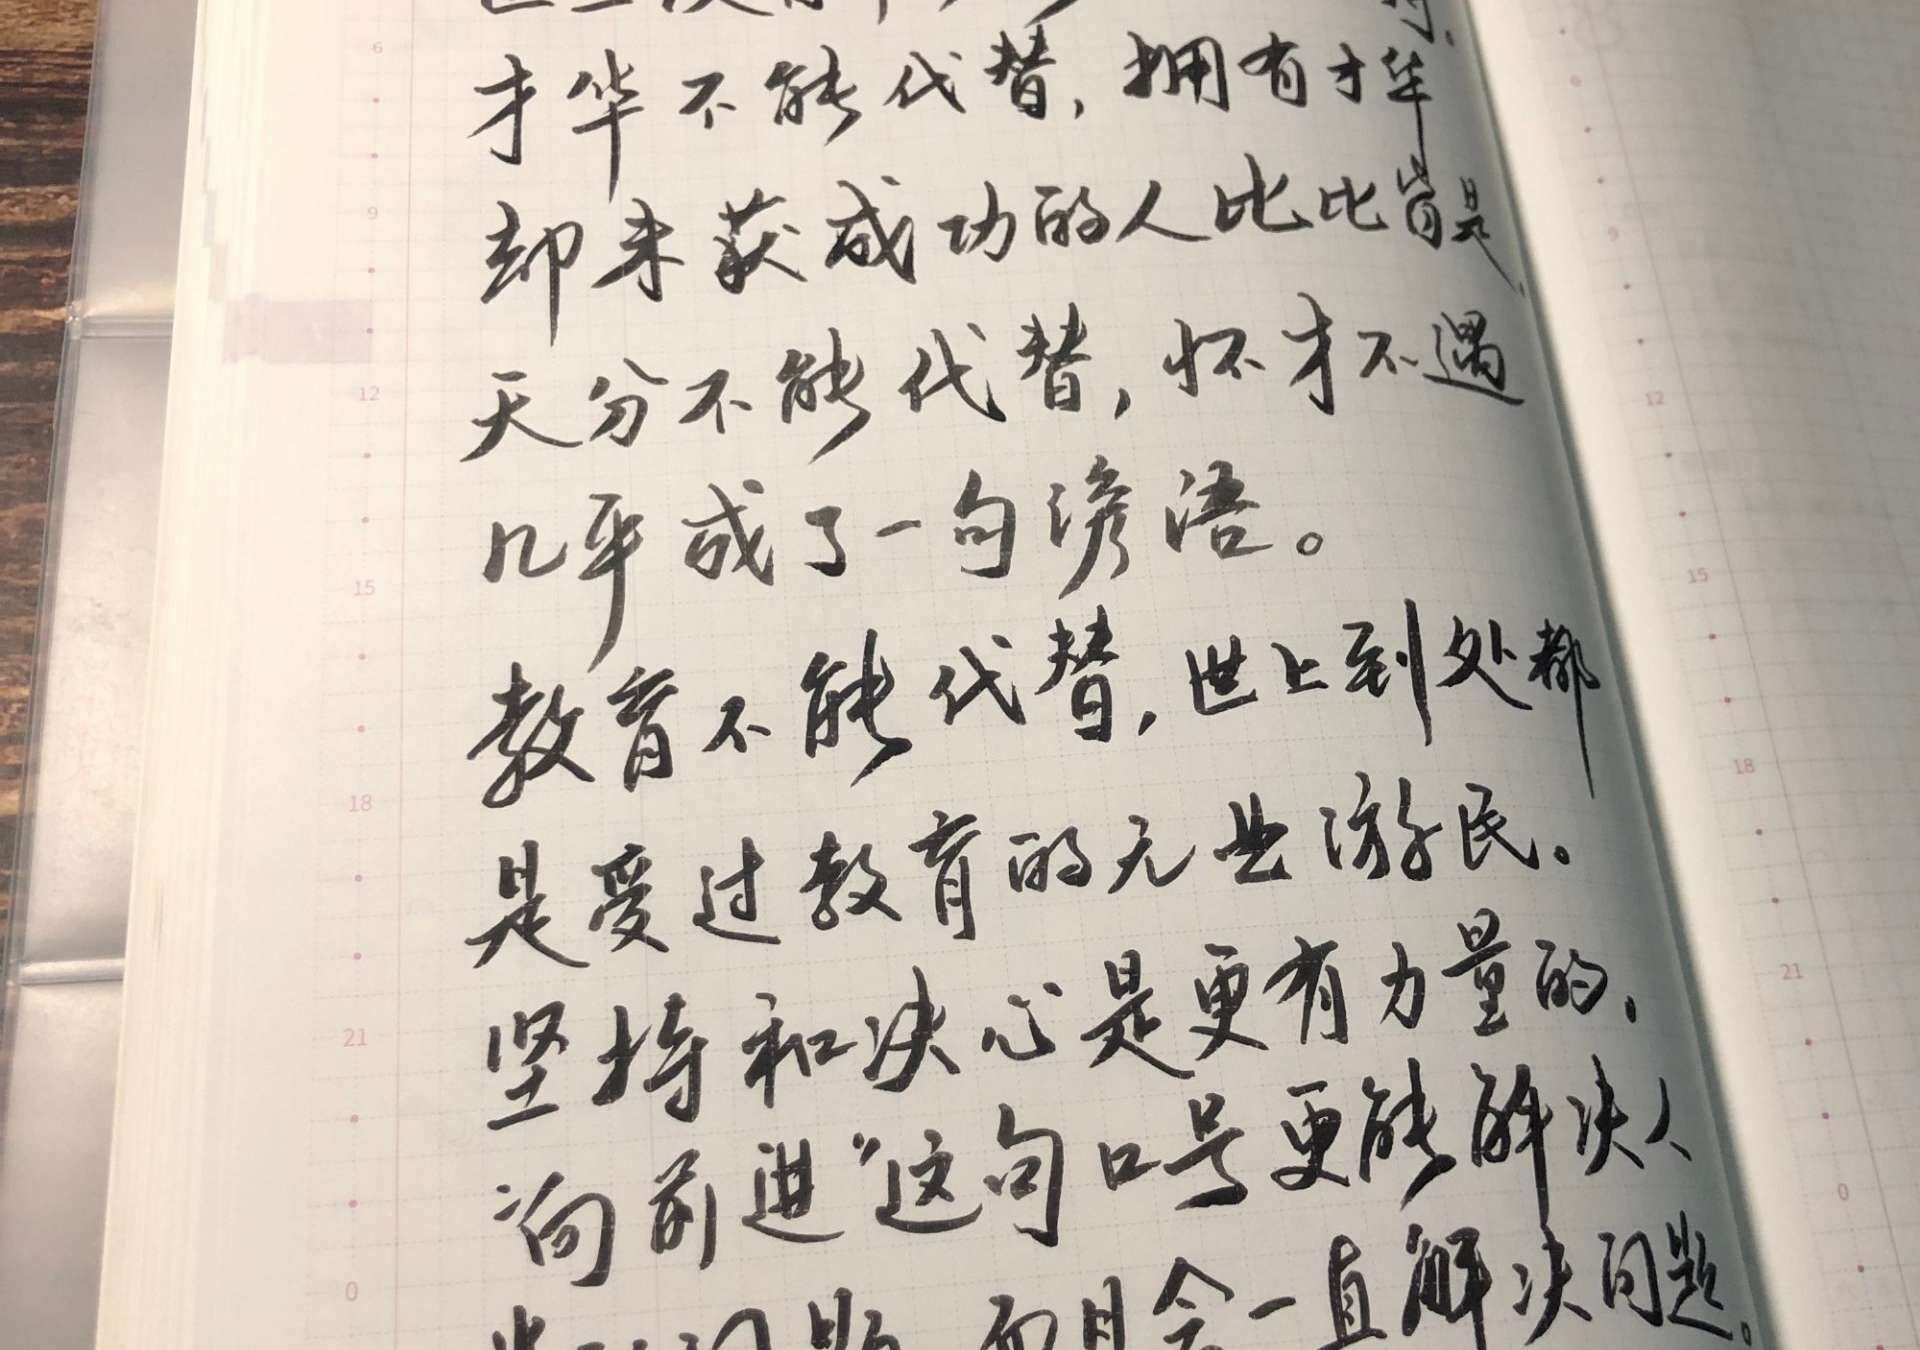 才华不能代替，拥有才华
却未获成功的人比比皆是，
天分不能代替，怀才不遇
几乎成了一句谚语。
教育不能代替，世上到处都
是受过教育的无业游民。
坚持和决心是更有力量的，
“向前进”这句口号更能解决人
问题，而且会一直解决问题。
6
9
12
15
18
21
0
9
12
15
18
21
0